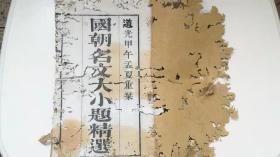 道光甲午孟夏重葉
國朝名文大小題精選